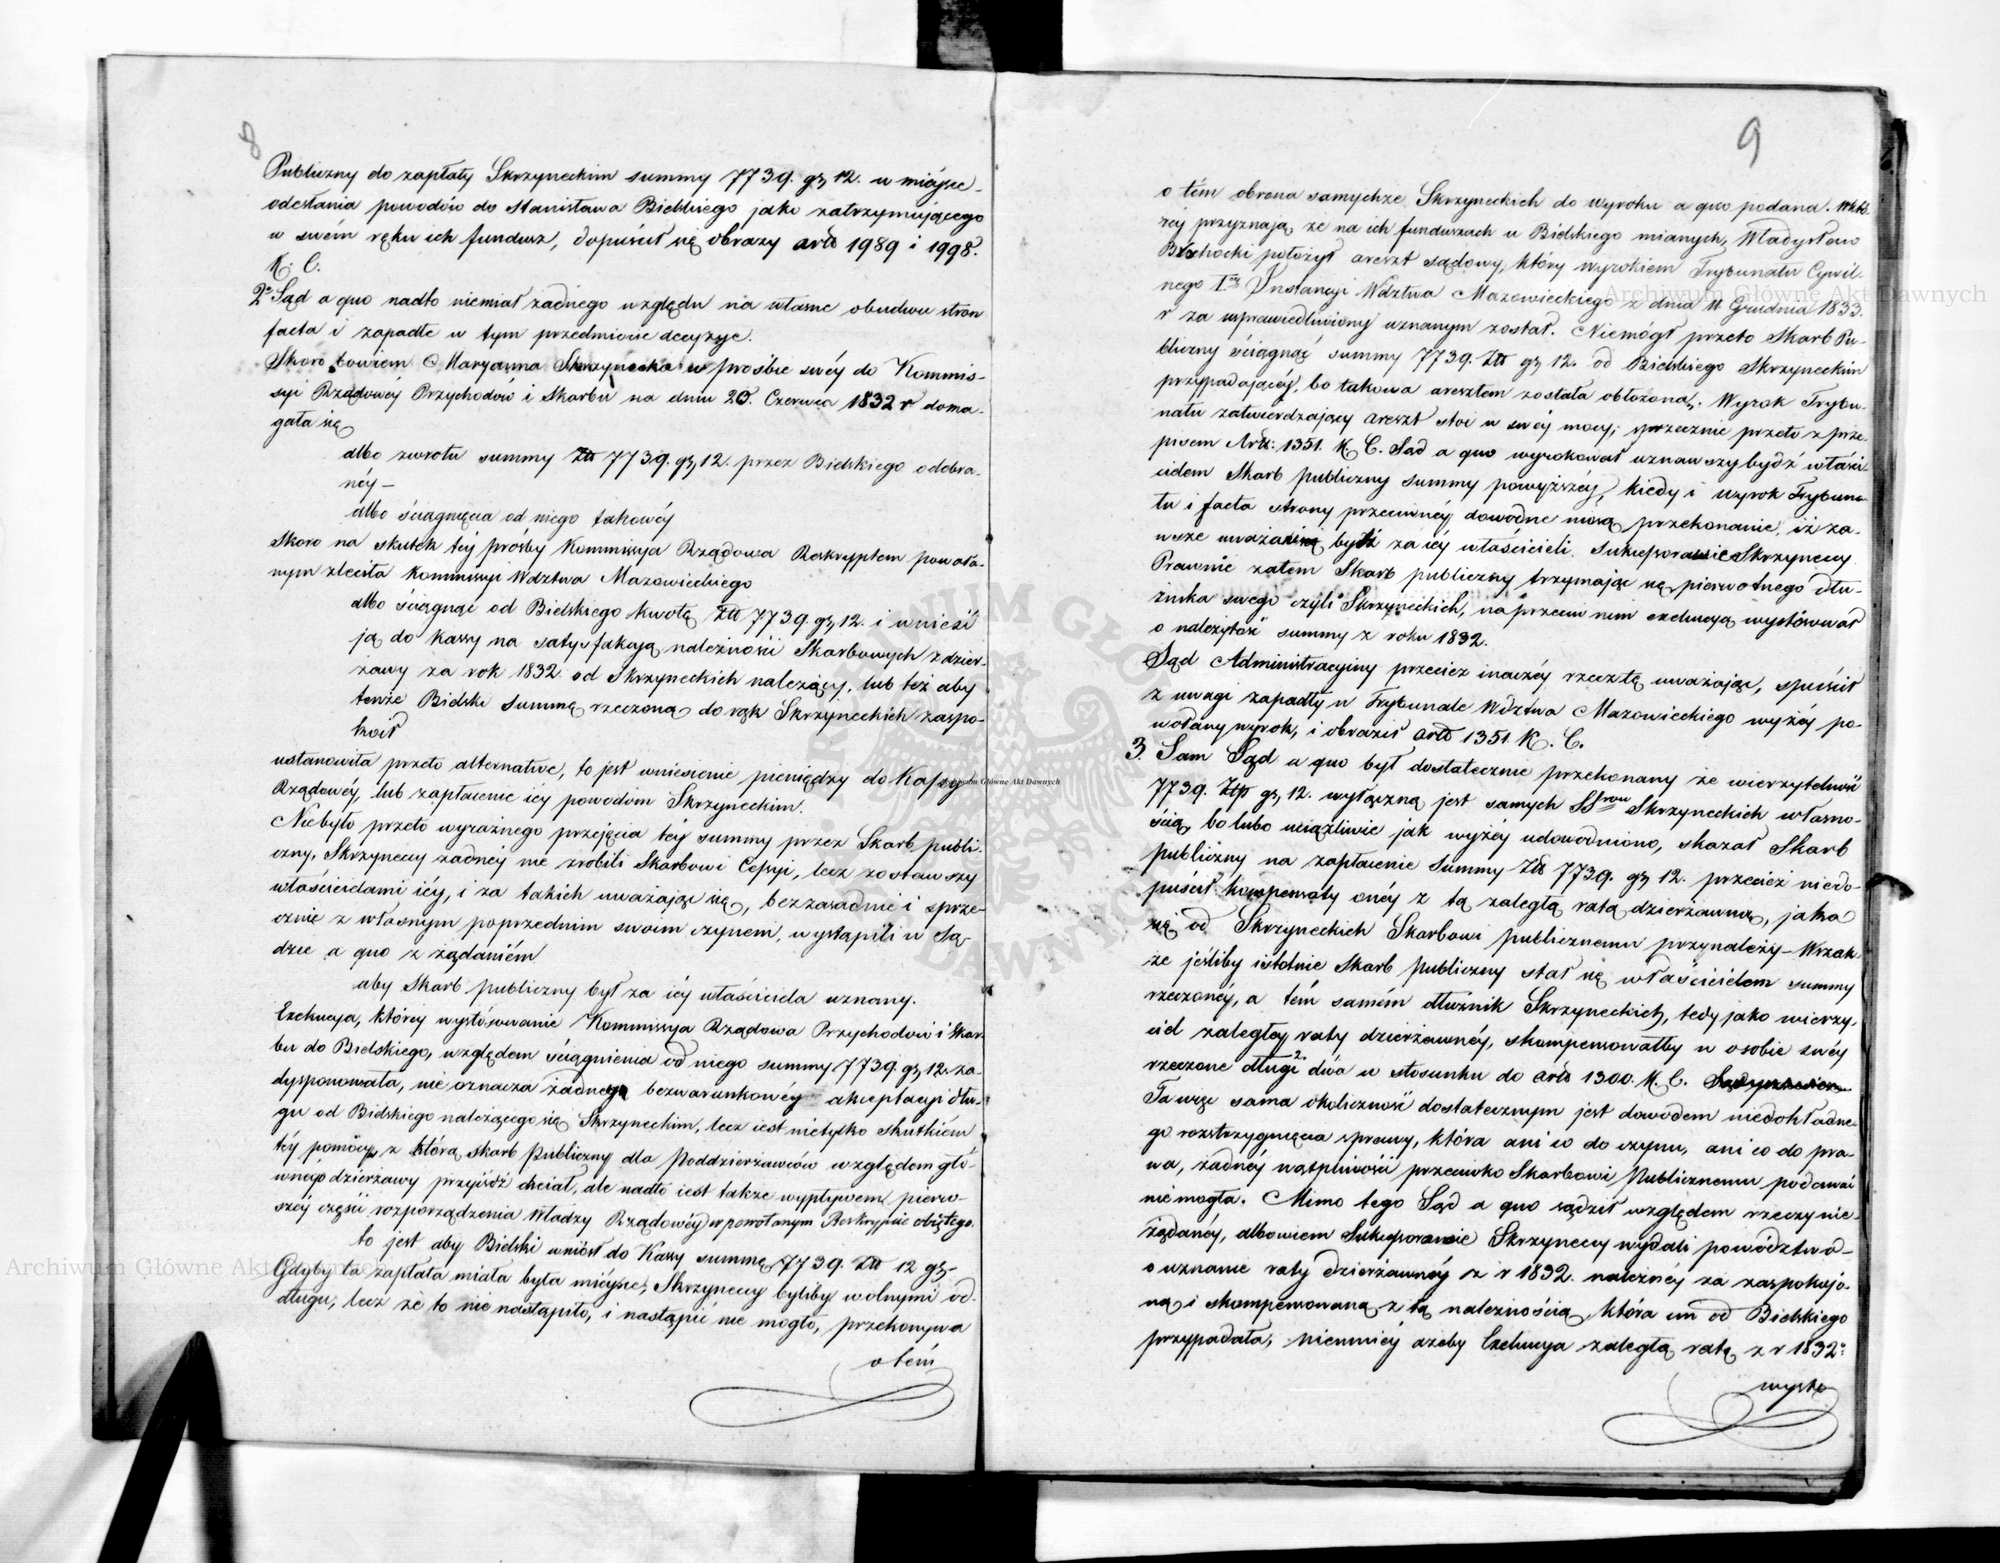 8
Publiczny do zapłaty Skrzyneckim summy 7739. gr, 12. w miéjsce
odesłania powodów do Stanisława Bielskiego jako zatrzymującego
w swém ręku ich fundusz, dopuścił się obrazy artỏ 1989 i 1998.
K. C.
2º Sąd a quo nadto niemiał żadnego względu na własne obudwu stron
facta i zapadłe w tym przedmiocie decyzye.
Skoro bowiem Maryanna Skrzynecka w prośbie swéy do Kommis-
syi Rządowéy Przychodów i Skarbu na dniu 20. Czerwca 1832 r doma-
gała się
albo zwrotu summy Złł 7739. gr, 12. przez Bielskiego odebra-
néy —
albo ściągnięcia od niego takowéy
Skoro na skutek téy prośby Kommissya Rządowa Reskryptem powoła-
nym zleciła Kommissyi Wdztwa Mazowieckiego
albo ściągnąć od Bielskiego kwotę Złł 7739. gr, 12. i wnieść
ją do Kassy na satysfakcyą należności Skarbowych z dzier-
żawy za rok 1832. od Skrzyneckich należącéy, lub też aby
tenże Bielski summę rzeczoną do rąk Skrzyneckich zaspo-
koił
ustanowiła przeto alternatwe, to jest wniesienie pieniędzy do Kassy
Rządowéy, lub zapłacenie iéy powodom Skrzyneckim.
Niebyło przeto wyraźnego przejęcia téy summy przez Skarb publi-
czny, Skrzyneccy żadnéy nie zrobili Skarbowi Cessyi, lecz zostawszy
właścicielami iéy, i za takich uważając się, bezzasadnie i sprze-
cznie z własnym poprzednim swoim czynem, wystąpili w Są-
dzie a quo z żądaniém
aby Skarb publiczny był za iéy właściciela uznany.
Exekucya, któréy wystósowanie Kommissya Rządowa Przychodów i Skar-
bu do Bielskiego, względem ściągnienia od niego summy 7739. gr, 12. za-
dysponowała, nie oznacza żadnego bezwarunkowéy akceptacyi dłu-
gu od Bielskiego należącego się Skrzyneckim, lecz iest nietylko skutkiém
téy pomocy, z którą skarb publiczny dla Poddzierżawców względem głó-
wnego dzierżawy przyiść chciał, ale nadto iest także wypływem pierw-
széy części rozporządzenia Władzy Rządowéy w powołanym Reskrypcie obiętego.
to jest aby Bielski wniósł do Kassy summę 7739. Złł 12 gr,
Gdyby ta zapłata miała była miéysce, Skrzyneccy byliby wolnymi od
długu, lecz że to nie nastąpiło, i nastąpić nie mogło, przekonywa
o tém
9
o tém obrona samychże Skrzyneckich do wyroku a quo podana.
rcy przyznają że na ich funduszach u Bielskiego mianych, Władysław
Błochocki położył areszt sądowy, który wyrokiem Trybunału Cywil-
nego Iéy Instancyi Wdztwa Mazowieckiego z dnia 11 Grudnia 1833.
r za usprawiedliwiony uznanym został. Niemógł przeto Skarb Pu-
bliczny ściągnąć summy 7739. Złł gr, 12. od Bielskiego Skrzyneckim
przypadającéj, bo takowa aresztem została obłożoną. Wyrok Trybu-
nału zatwierdzający areszt stoi w swéj mocy; sprzecznie przeto z prze-
pisem Artỏ: 1351. K. C. Sąd a quo wyrokował uznawszy bydź właści-
cielem Skarb publiczny summy powyższéj, kiedy i wyrok Trybuna-
łu i facta strony przeciwnéy dowodne niosą przekonanie, iż za-
wsze uważani byli za iéy właścicieli Sukcessorowie Skrzyneccy.
Prawnie zatém Skarb publiczny trzymając się pierwotnego dłu-
żnika swego czyli Skrzyneckich, naprzeciw nim exekucyą wystósował
o należytość summy z roku 1832.
Sąd Administracyiny przecież inaczéy rzecz tę uważając, spuścił
z uwagi zapadły w Trybunale Wdztwa Mazowieckiego wyżéy po-
wołany wyrok, i obraził artỏ 1351 K. C.
3. Sam Sąd a quo był dostatecznie przekonany że wierzytelność
7739. Złp gr, 12. wyłączną jest samych SSrow Skrzyneckich własno-
ścią, bo lubo uciążliwie jak wyżéy udowodniono, skazał Skarb
publiczny na zapłacenie summy Złł 7739. gr, 12. przecież niedo-
puścił kompensaty onéy z tą zaległą ratą dzierżawną, jaka
się od Skrzyneckich Skarbowi publicznemu przynależy — Wszak-
że jeśliby istotnie Skarb publiczny stał się właścicielem summy
rzeczonéy, a tém samém dłużnik Skrzyneckich, tedy jako wierzy-
ciel zaległéy raty dzierżawnéy, skompensowałby w osobie swéy
rzeczone długi dwa w stosunku do artỏ 1300. K. C.
Ta więc sama okoliczność dostatecznym jest dowodem niedokładne-
go rozstrzygnięcia sprawy, która ani co do czynu, ani co do pra-
wa, żadnéy wątpliwości przeciwko Skarbowi Publicznemu podawać
niemogła. Mimo tego Sąd a quo sądził względem rzeczy nie-
żądanéy, albowiem Sukcessorowie Skrzyneccy wydali powództwo
o uznanie raty dzierżawnéy z r 1832. należnéy za zaspokojo-
ną i skompensowaną z tą należnością, która im od Bielskiego
przypadała, niemniéy ażeby Exekucya zaległą ratę z r 1832
wystó
Archiwum Główne Akt Dawnych
Archiwum Główne Akt Dawnych
Archiwum Główne Akt Dawnych
ARCHIWUM GŁÓWNE AKT DAWNYCH